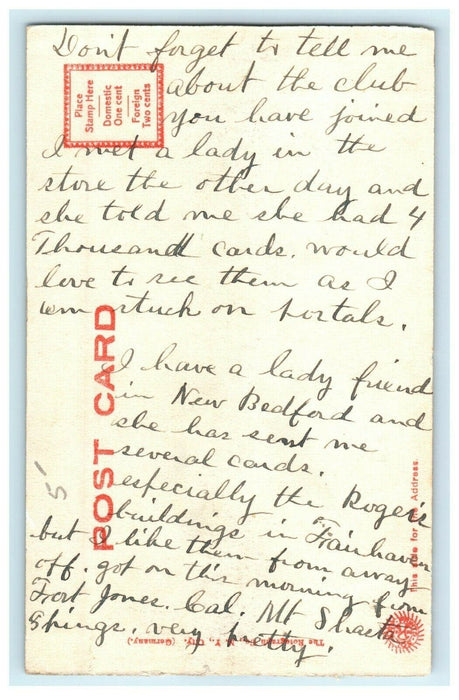 Don't forget to tell me
about the club
you have joined
I met a lady in the
store the other day and
she told me she had 4
Thousand cards. would
love to see them as I
am stuck on portals.
I have a lady friend
in New Bedford and
she has sent me
several cards.
especially the Roger's
buildings in Fairhaven
but I like them from away
off. got on this morning from
Fort Jones. Cal. Mt Shasta
Springs very pretty.
Place
Stamp Here
Domestic
One cent
Foreign
Two cents
POST CARD
This side for the Address.
The Rotograph Co., N. Y. City. (Germany.)
5'